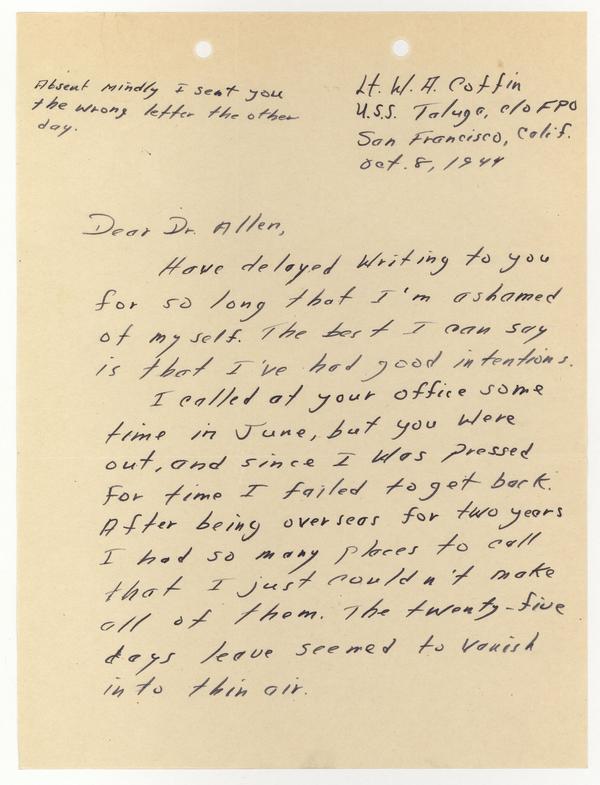 Absent mindly I sent you
the wrong letter the other
day.
Lt. W. A. Coffin
U.S.S. Taluga, c/o FPO
San Francisco, Calif.
Oct. 8, 1944
Dear Dr. Allen,
Have delayed writing to you
for so long that I'm ashamed
of my self. The best I can say
is that I've had good intentions.
I called at your office some
time in June, but you were
out, and since I was pressed
for time I failed to get back.
After being overseas for two years
I had so many places to call
that I just couldn't make
all of them. The twenty-five
days leave seemed to vanish
into thin air.